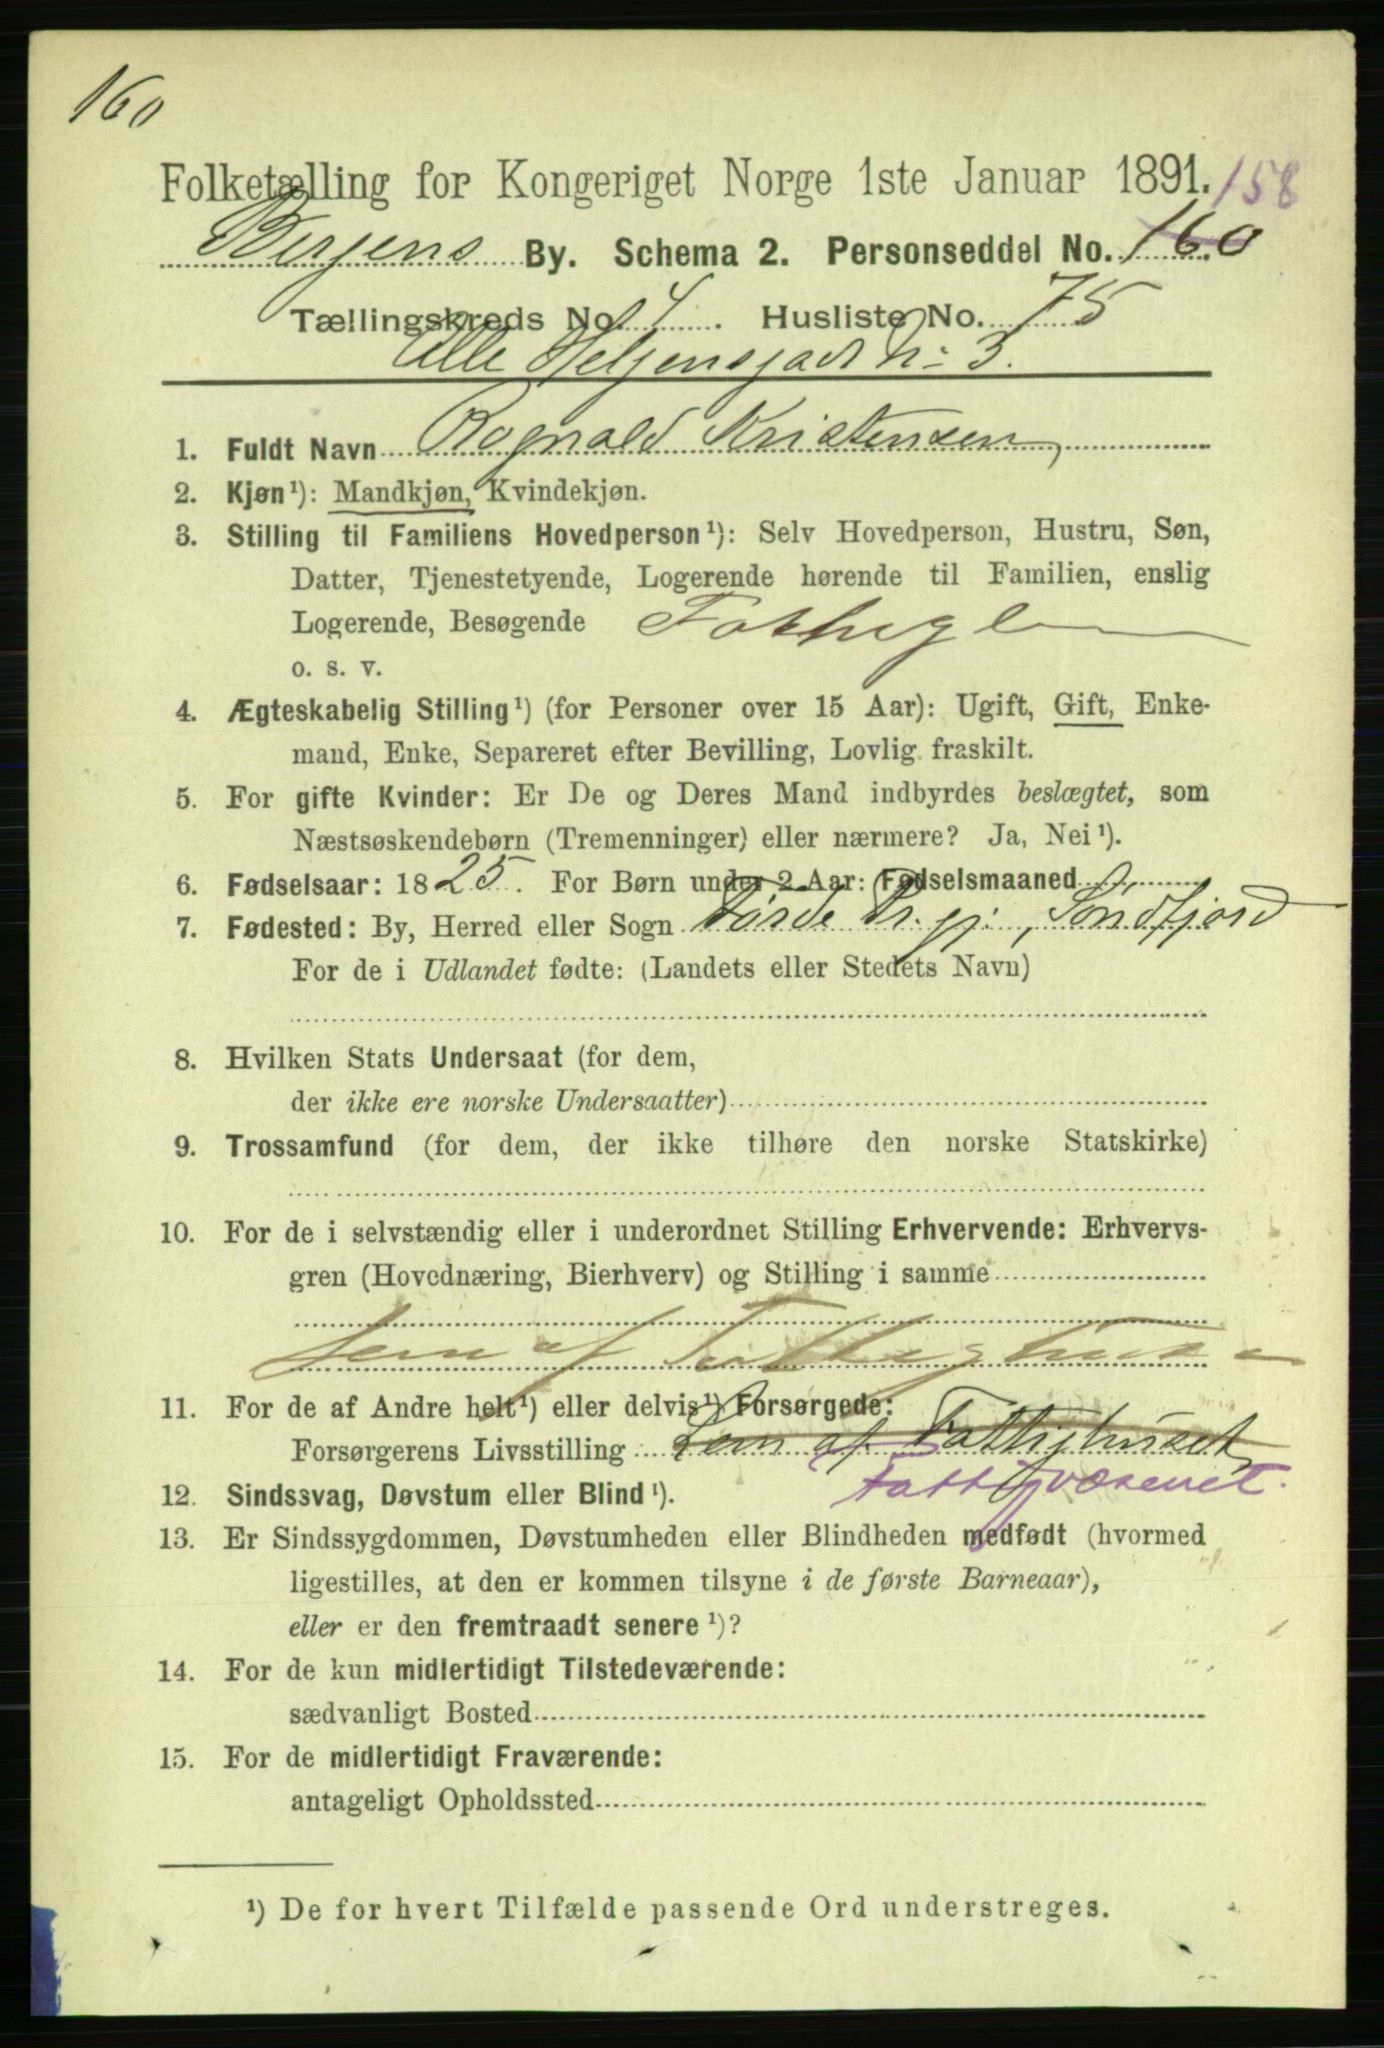 160
Folketælling for Kongeriget Norge 1ste Januar 1891.
158
Bergens By. Schema 2. Personseddel No. 160
Tællingskreds No. 4. Husliste No. 75
Alle Helgensgad No 3.
1. Fuldt Navn Ragnald Kristensen
2. Kjøn¹): Mandkjøn, Kvindekjøn.
3. Stilling til Familiens Hovedperson¹): Selv Hovedperson, Hustru, Søn,
Datter, Tjenestetyende, Logerende hørende til Familien, enslig
Logerende, Besøgende Fattigl
o. s. v.
4. Ægteskabelig Stilling¹) (for Personer over 15 Aar): Ugift, Gift, Enke-
mand, Enke, Separeret efter Bevilling, Lovlig fraskilt.
5. For gifte Kvinder: Er De og Deres Mand indbyrdes beslægtet, som
Næstsøskendebørn (Tremenninger) eller nærmere? Ja, Nei¹).
6. Fødselsaar: 1825. For Børn under 2 Aar: Fødselsmaaned
7. Fødested: By, Herred eller Sogn Førde Pr.gj., Søndfjord
For de i Udlandet fødte: (Landets eller Stedets Navn)
8. Hvilken Stats Undersaat (for dem,
der ikke ere norske Undersaatter)
9. Trossamfund (for dem, der ikke tilhøre den norske Statskirke)
10. For de i selvstændig eller i underordnet Stilling Erhvervende: Erhvervs-
gren (Hovednæring, Bierhverv) og Stilling i samme
Lem af Fattighuse
11. For de af Andre helt¹) eller delvis¹) Forsørgede:
Forsørgerens Livsstilling Lem af Fattighuset
Fattigvæsenet.
12. Sindssvag, Døvstum eller Blind¹).
13. Er Sindssygdommen, Døvstumheden eller Blindheden medfødt (hvormed
ligestilles, at den er kommen tilsyne i de første Barneaar),
eller er den fremtraadt senere¹)?
14. For de kun midlertidigt Tilstedeværende:
sædvanligt Bosted
15. For de midlertidigt Fraværende:
antageligt Opholdssted
¹) De for hvert Tilfælde passende Ord understreges.